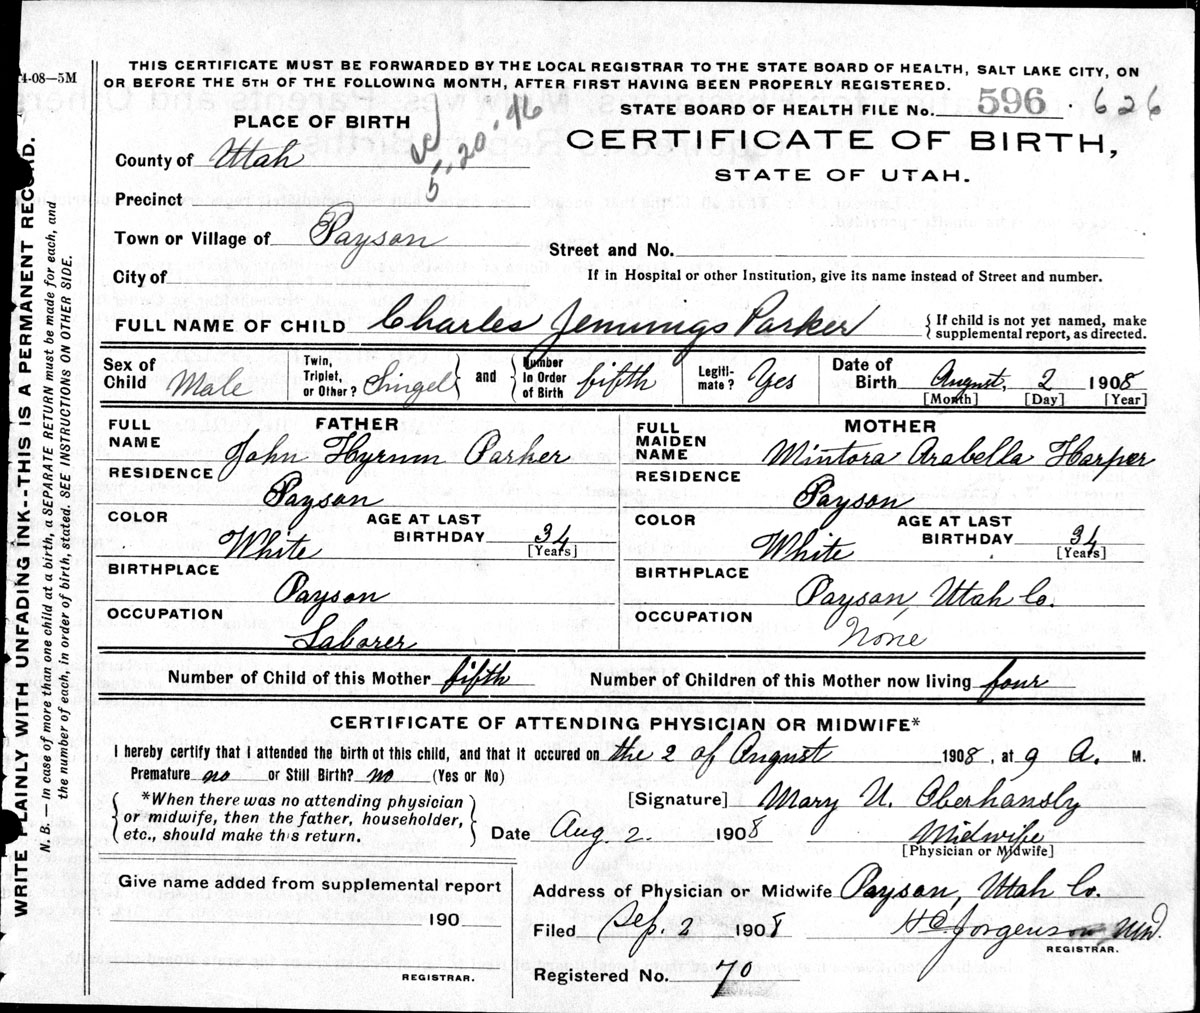 4-08—5M
THIS CERTIFICATE MUST BE FORWARDED BY THE LOCAL REGISTRAR TO THE STATE BOARD OF HEALTH, SALT LAKE CITY, ON
OR BEFORE THE 5TH OF THE FOLLOWING MONTH, AFTER FIRST HAVING BEEN PROPERLY REGISTERED.
STATE BOARD OF HEALTH FILE No. 596 · 626
PLACE OF BIRTH
5-20-46
CERTIFICATE OF BIRTH,
STATE OF UTAH.
County of Utah
Precinct
Town or Village of Payson
Street and No.
City of
If in Hospital or other Institution, give its name instead of Street and number.
FULL NAME OF CHILD Charles Jennings Parker
{ If child is not yet named, make
supplemental report, as directed.
Sex of Child Male
Twin, Triplet, or Other? Singel
and
Number in Order of Birth fifth
Legiti-mate? Yes
Date of Birth August, 2 1908
[Month] [Day] [Year]
FATHER
FULL NAME John Hyrum Parker
RESIDENCE Payson
COLOR White
AGE AT LAST BIRTHDAY 34
[Years]
BIRTHPLACE Payson
OCCUPATION Laborer
MOTHER
FULL MAIDEN NAME Mintora Arabella Harper
RESIDENCE Payson
COLOR White
AGE AT LAST BIRTHDAY 34
[Years]
BIRTHPLACE Payson, Utah Co.
OCCUPATION None
Number of Child of this Mother fifth
Number of Children of this Mother now living four
CERTIFICATE OF ATTENDING PHYSICIAN OR MIDWIFE*
I hereby certify that I attended the birth of this child, and that it occured on the 2 of August 1908, at 9 A. M.
Premature no or Still Birth? no (Yes or No)
*When there was no attending physician
or midwife, then the father, householder,
etc., should make this return.
[Signature] Mary U. Oberhansly
Date Aug 2. 1908
Midwife
[Physician or Midwife]
Give name added from supplemental report
190
REGISTRAR.
Address of Physician or Midwife Payson, Utah Co.
Filed Sep. 2 1908
H C Jorgenson, MD.
REGISTRAR.
Registered No. 70
WRITE PLAINLY WITH UNFADING INK--THIS IS A PERMANENT RECORD.
N. B. — In case of more than one child at a birth, a SEPARATE RETURN must be made for each, and
the number of each, in order of birth, stated. SEE INSTRUCTIONS ON OTHER SIDE.